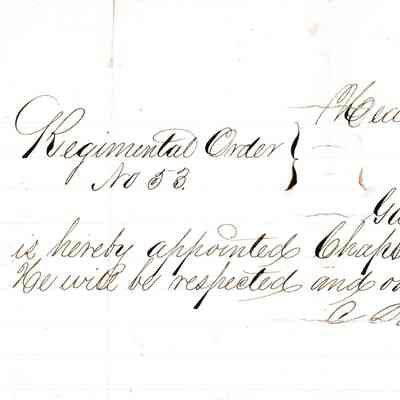 Hea
Regimental Order
No 53.
is hereby appointed Chap
He will be respected and o